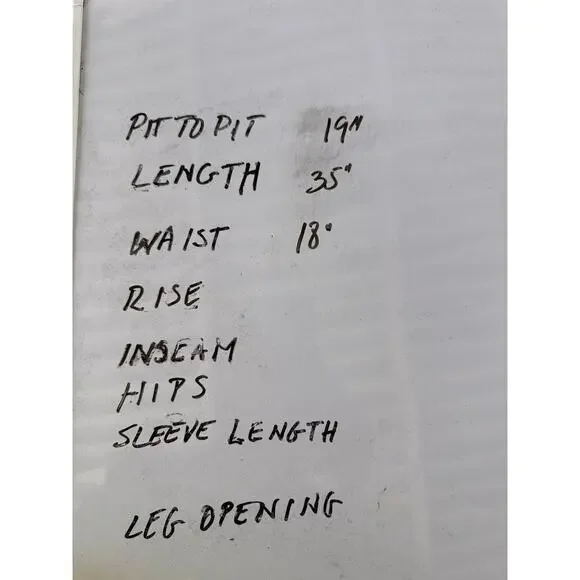 PIT TO PIT 19"
LENGTH 35"
WAIST 18"
RISE
INSEAM
HIPS
SLEEVE LENGTH
LEG OPENING